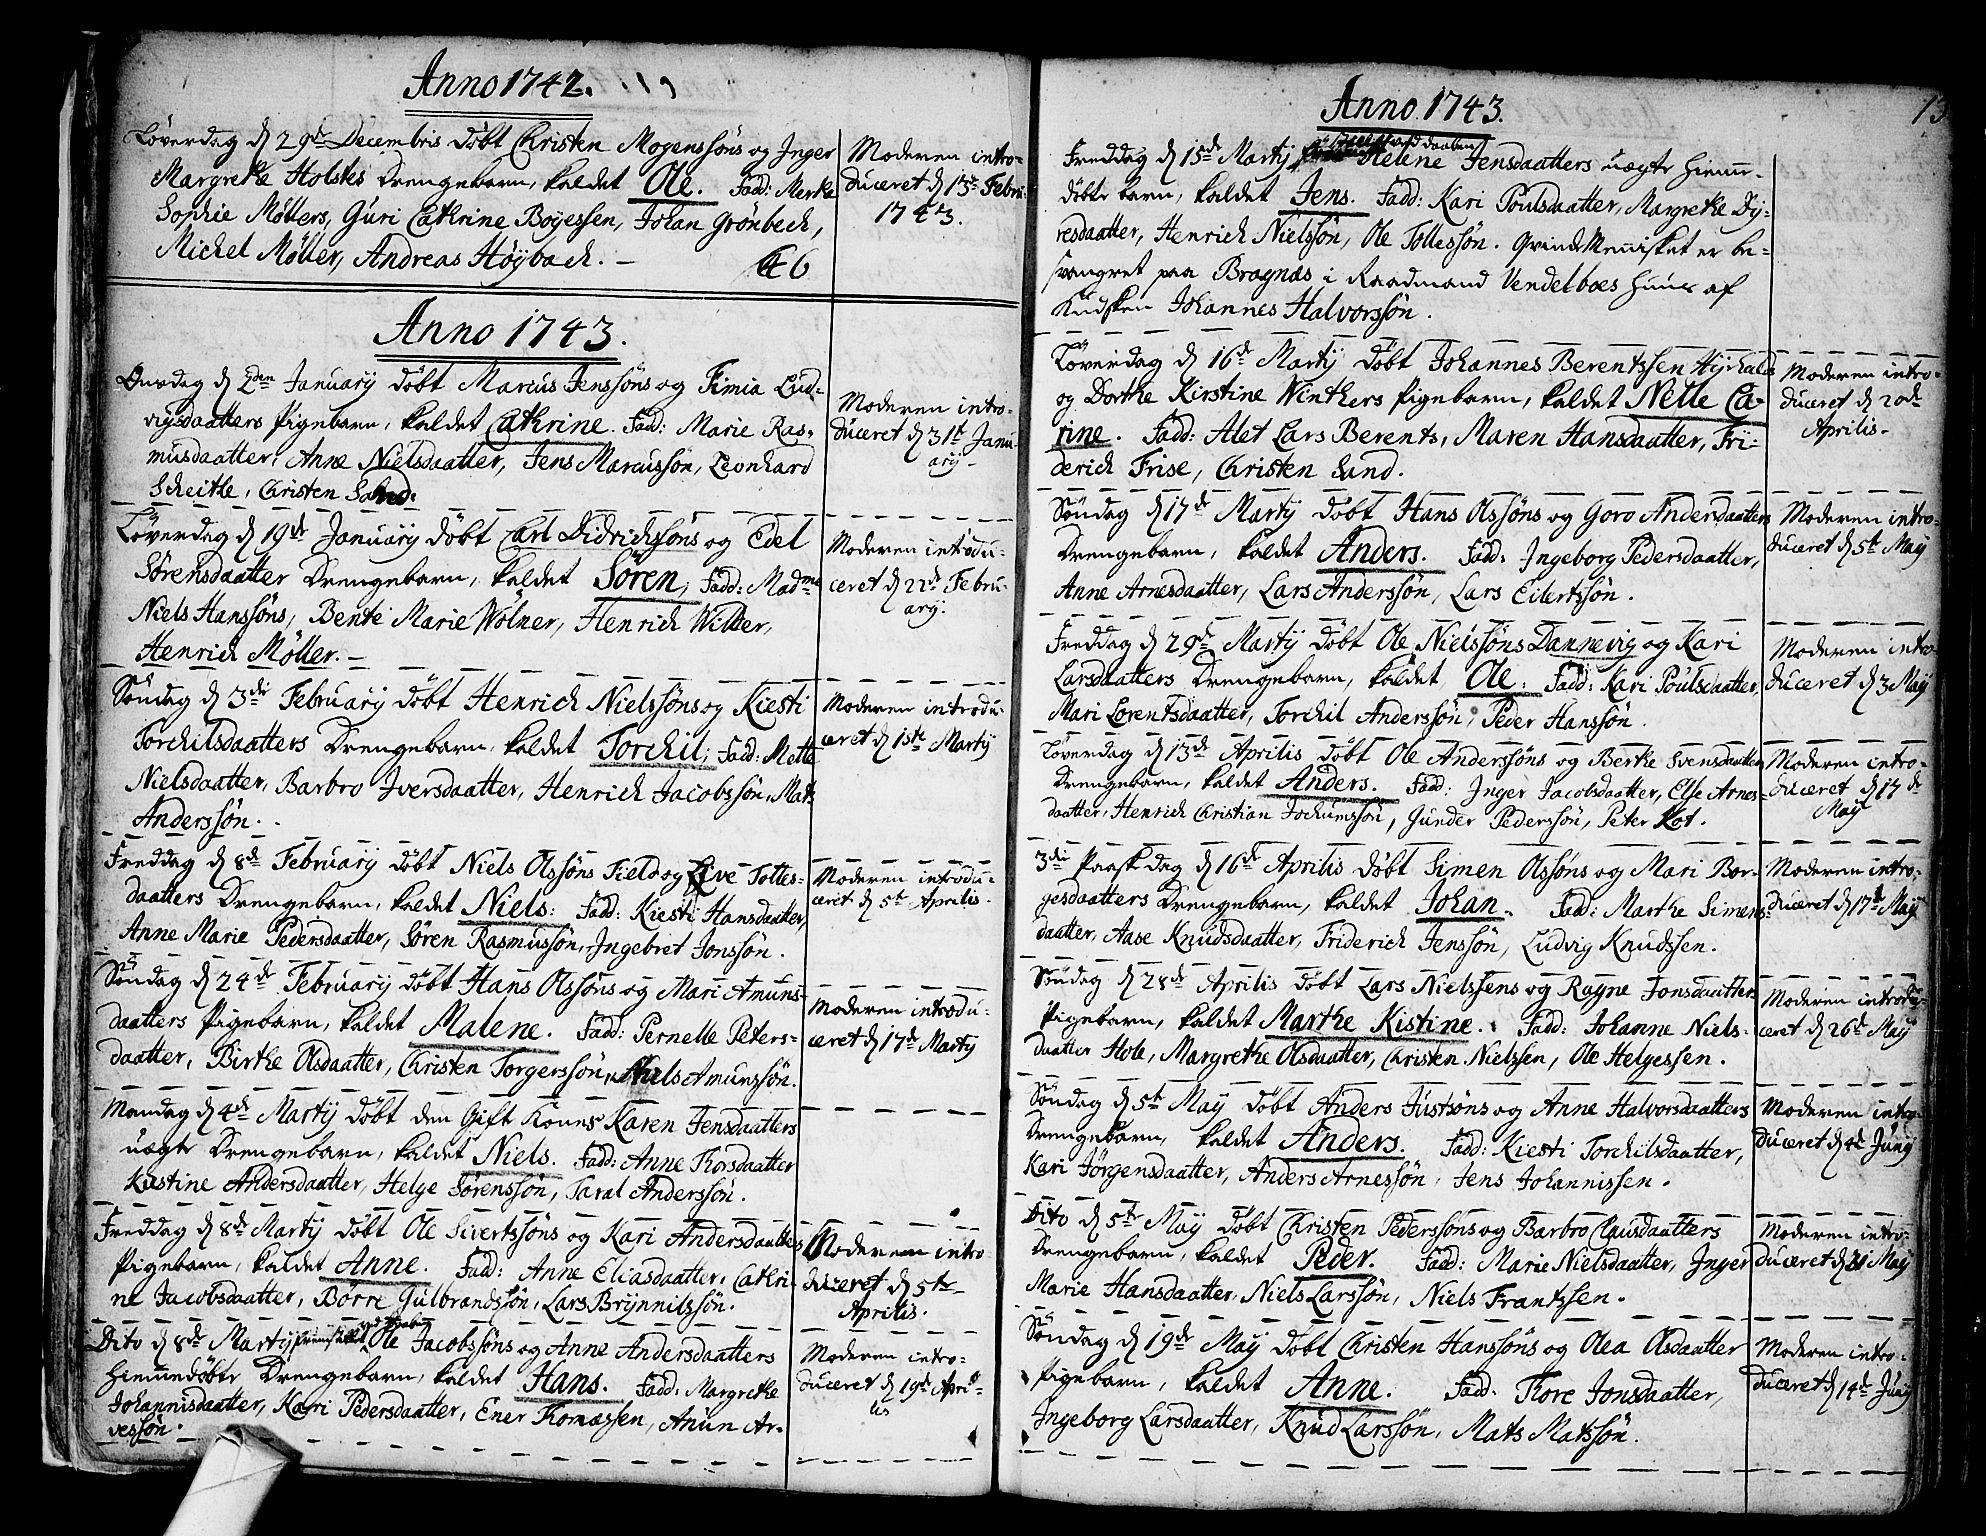 Anno 1742.
Løverdag d 29de Decembris døbt Christen Mogenssøns og Inger
Margrethe Holstes Drengebarn, kaldet Ole. Fadd: Merthe
Sophie Møllers, Guri Cathrine Boyessen, Johan Grønbech,
Michel Møller, Andreas Høybach. —
46
Moderen intro-
duceret d 13de Febru:
1743.
Anno 1743.
Onsdag d 2den January døbt Marcus Jenssøns og Fimia Lud-
vigsdaatters Pigebarn, kaldet Cathrine. Fadd: Marie Ras-
musdaatter, Anne Nielsdaatter, Jens Marcussøn, Leonhard
Scheitle, Christen
Moderen intro-
duceret d 31te Janu-
ary-
Løverdag d 19de January døbt Carl Didrichsøns og Edel
Sørensdaatter Drengebarn, kaldet Søren, Fadd: Madme
Niels Hanssøns, Bente Marie Wølner, Henrich Witter,
Henrich Møller. —
Moderen introdu-
ceret d 22de Febru-
ary.
Søndag d 3die February døbt Henrich Nielssøns og Kiesti
Torchilsdaatters Drengebarn, kaldet Torchil; Fadd: Mette
Nielsdaatter, Barbro Iversdaatter, Henrich Jacobssøn, Mats
Anderssøn.
Moderen introdu-
ceret d 15de Martij
Freddag d 8de February døbt Niels Olssøns Field og Live Tolles-
daatters Drengebarn, kaldet Niels: Fadd: Kiesti Hansdaatter,
Anne Marie Pedersdaatter, Søren Rasmussøn, Ingebret Jonssøn.
Moderen introdu-
ceret d 5te Aprilis.
Søndag d 24de February døbt Hans Olssøns og Mari Amuns-
daatters Pigebarn, kaldet Malene. Fadd: Pernelle Peters-
daatter, Birthe Olsdaatter, Christen Torgerssøn, Niels Amunssøn.
Moderen introdu-
ceret d 17de Martij
Mandag d 4de Martij døbt den Gift Kones Karen Jensdaatters
uægte Drengebarn, kaldet Niels. Fadd: Anne Thorsdaatter
Kiestine Andersdaatter, Helge Sørenssøn, Taral Anderssøn.
Freddag d 8de Martij døbt Ole Sivertssøns og Kari Andersdaatters
Pigebarn, kaldet Anne. Fadd: Anne Eliasdaatter, Cathri-
ne Jacobsdaatter, Børre Gulbrandssøn, Lars Brynnilssøn.
Moderen intro
duceret d 5te
Aprilis.
Dito d 8de Martij Ole Jacobssøns og Anne Andersdaatters
hiemmedøbte Drengebarn, kaldet Hans. Fadd: Margrethe
Johannisdaatter, Kari Pedersdaatter, Ener Thomassen, Anun Ar-
vessøn.
Moderen intro-
duceret d 19de Apri-
lis
13
Anno 1743.
Freddag d 15de Martij Helene Jensdaatters uægte hiemme-
døbte barn, kaldet Jens. Fadd: Kari Poulsdaatter, Margrethe Dy-
resdaatter, Henrich Nielssøn, Ole Tollessøn. Qvinde Mennisket er be-
svangret paa Bragnæs i Raadmand Vendelboes Huus af
Kudsken Johannes Halvorssøn.
Løverdag d 16de Martij døbt Johannes Berentssen
og Dorthe Kirstine Winthers Pigebarn, kaldet Nelle Ca-
rine. Fadd: Alet Lars Berents, Maren Hansdaatter, Fri-
derich Frise, Christen Lund.
Moderen intro-
duceret d 20de
Aprilis.
Søndag d 17de Martij døbt Hans Olssøns og Goro Andersdaatters
Drengebarn, kaldet Anders. Fadd: Ingeborg Pedersdaatter,
Anne Arnesdaatter, Lars Anderssøn, Lars Eilertssøn.
Moderen intro-
duceret d 5te May
Freddag d 29de Martij døbt Ole Nielssøns Dannevig og Kari
Larsdaatters Drengebarn, kaldet Ole. Fadd: Kari Poulsdaatter,
Mari Lorentsdaatter, Torchil Anderssøn, Peder Hanssøn.
Moderen intro-
duceret d 3 May
Løverdag d 13de Aprilis døbt Ole Anderssøns og Berthe Svensdaatters
Drengebarn, kaldet Anders. Fadd: Inger Jacobsdaatter, Else Arnes-
daatter, Henrich Christian Jochumssøn, Gunder Pederssøn, Peter Kot.
Moderen intro-
duceret d 17de
May
3die Paaskdag d 16de Aprilis døbt Simen Olssøns og Mari Bør-
gesdaatters Drengebarn, kaldet Johan. Fadd: Marthe Simens-
daatter, Aase Knudsdaatter, Friderich Jenssøn, Ludvig Knudssen.
Moderen intro-
duceret d 17de May
Søndag d 28de Aprilis døbt Lars Nielssens og Ragne Jonsdaatters
Pigebarn, kaldet Marthe Kistine. Fadd: Johanne Niels-
daatter Hole, Margrethe Olsdaatter, Christen Nielssen, Ole Helgessen.
Moderen introdu-
ceret d 26de May
Søndag d 5te May døbt Anders Justsøns og Anne Halvorsdaatters
Drengebarn, kaldet Anders. Fadd: Kiesti Torchilsdaatter,
Kari Jørgensdaatter, Anders Arnessøn, Jens Johannissen.
Moderen intro-
duceret d 4de Juny
Dito d 5te May døbt Christen Pederssøns og Barbro Clausdaatters
Drengebarn, kaldet Peder. Fadd: Marie Nielsdaatter, Inger
Marie Hansdaatter, Niels Larssøn, Niels Frantssen.
Moderen intro-
duceret d 21 May
Søndag d 19de May døbt Christen Hanssøns og Olea Olsdaatter
Pigebarn, kaldet Anne. Fadd: Thore Jonsdaatter,
Ingeborg Larsdaatter, Knud Larssøn, Mats Matssøn.
Moderen intro-
duceret d 14de Juny